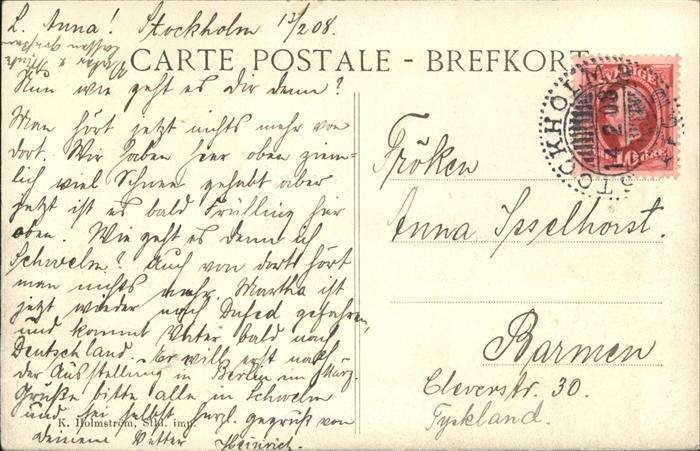 L. Anna! Stockholm 13/2 08.
CARTE POSTALE - BREFKORT
Nun wie geht es Dir denn?
Man hört jetzt nichts mehr von
dort. Wir haben hier oben ziem-
lich viel Schnee gehabt aber
jetzt ist es bald Frühling hier
oben. Wie geht es denn in
Schwelm? Auch von dort hört
man nichts mehr. Martha ist
jetzt wieder nach gefahren,
und kommt Vater bald nach
Deutschland. Er will erst nach
der Ausstellung in Berlin im März.
Grüße bitte alle in Schwelm
und sei selbst herzl. gegrüßt von
K. Holmström, Sthl. imp.
Deinem Vetter Heinrich.
Fröken
Anna Isselhorst.
Barmen
Cleverstr. 30.
Tyskland.
STOCKHOLM
14.2.08